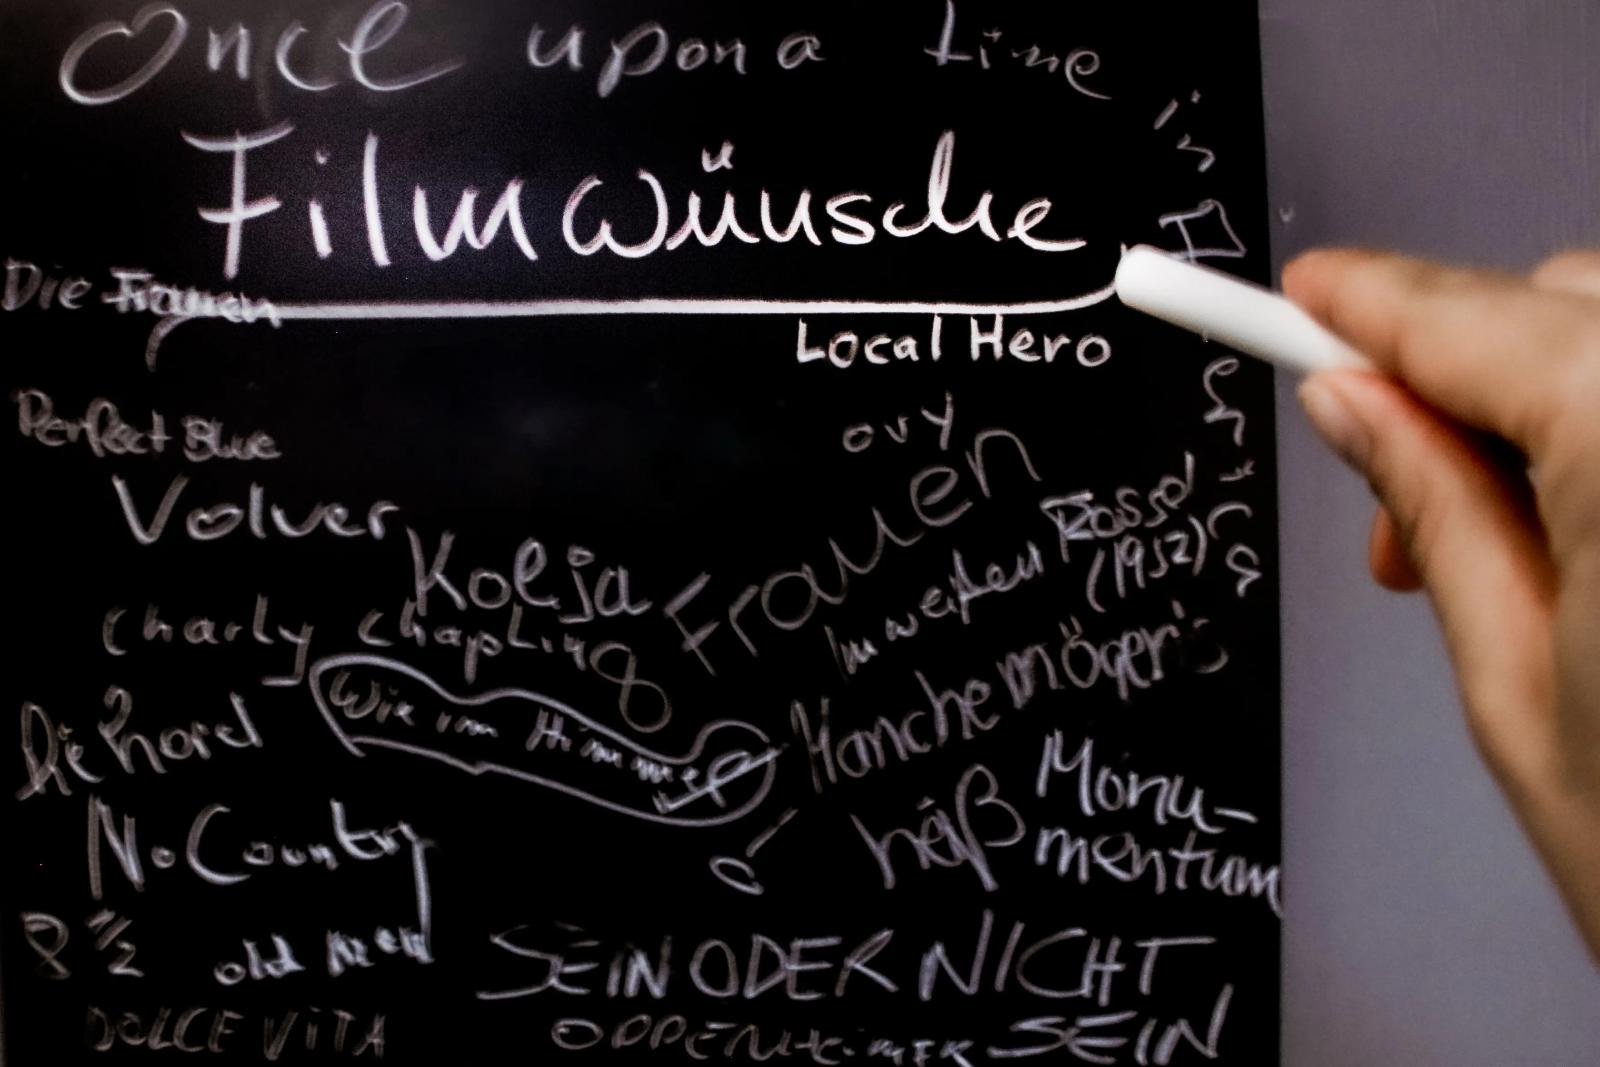 Once upon a time
in
Filmwünsche
Die Frauen
Local Hero
Perfect Blue
ovy
Volver
Frauen
Kolja
Im weißen Rössel
(1952)
Charly Chapling
Wie im Himmel
Manche mögen's
heiß
Die hard
Monu-
mentum
No Country
old men
8 1/2
SEIN ODER NICHT
SEIN
DOLCE VITA
OPPENHEIMER